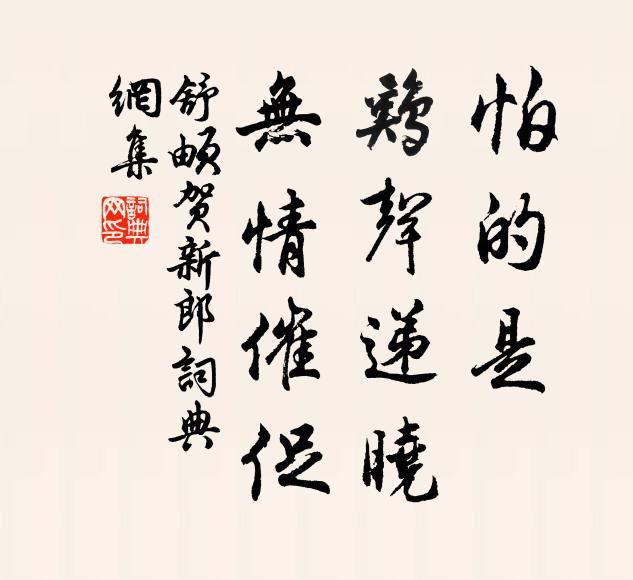 怕的是
鷄聲遞曉
無情催促
舒頔贺新郎詞典
網集
詞典
网印